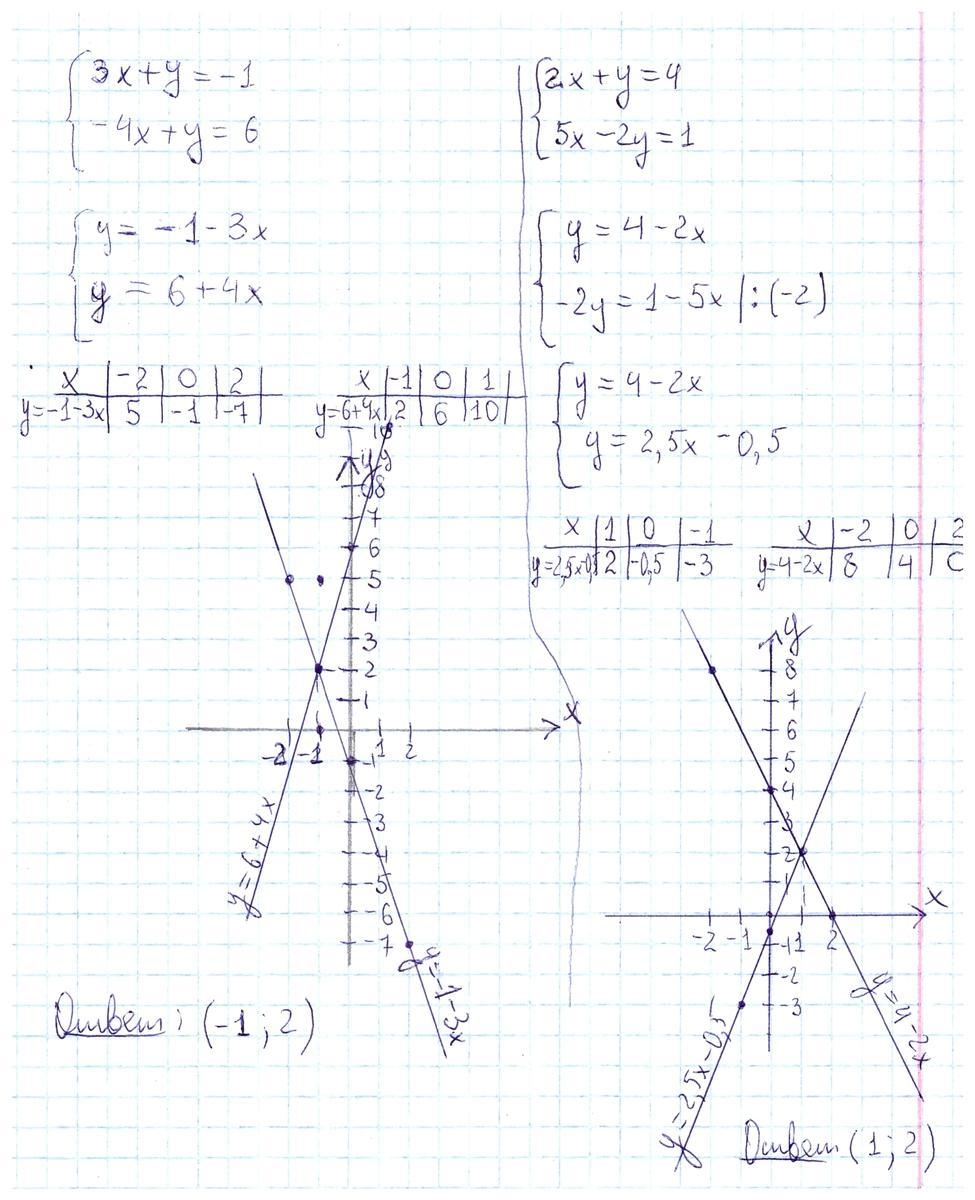 3x + y = -1
-4x + y = 6
y = -1 - 3x
y = 6 + 4x
x | -2 | 0 | 2
y=-1-3x | 5 | -1 | -7
x | -1 | 0 | 1
y=6+4x | 2 | 6 | 10
10
y 9
8
7
6
5
4
3
2
1
x
-2 -1 1 2
-1
-2
-3
-4
-5
-6
-7
y = 6 + 4x
y = -1 - 3x
Ответ: (-1; 2)
2x + y = 4
5x - 2y = 1
y = 4 - 2x
-2y = 1 - 5x | : (-2)
y = 4 - 2x
y = 2,5x - 0,5
x | 1 | 0 | -1
y=2,5x-0,5 | 2 | -0,5 | -3
x | -2 | 0 | 2
y=4-2x | 8 | 4 | 0
y
8
7
6
5
4
3
2
1
x
-2 -1 1 2
-1
-2
-3
y = 2,5x - 0,5
y = 4 - 2x
Ответ (1; 2)